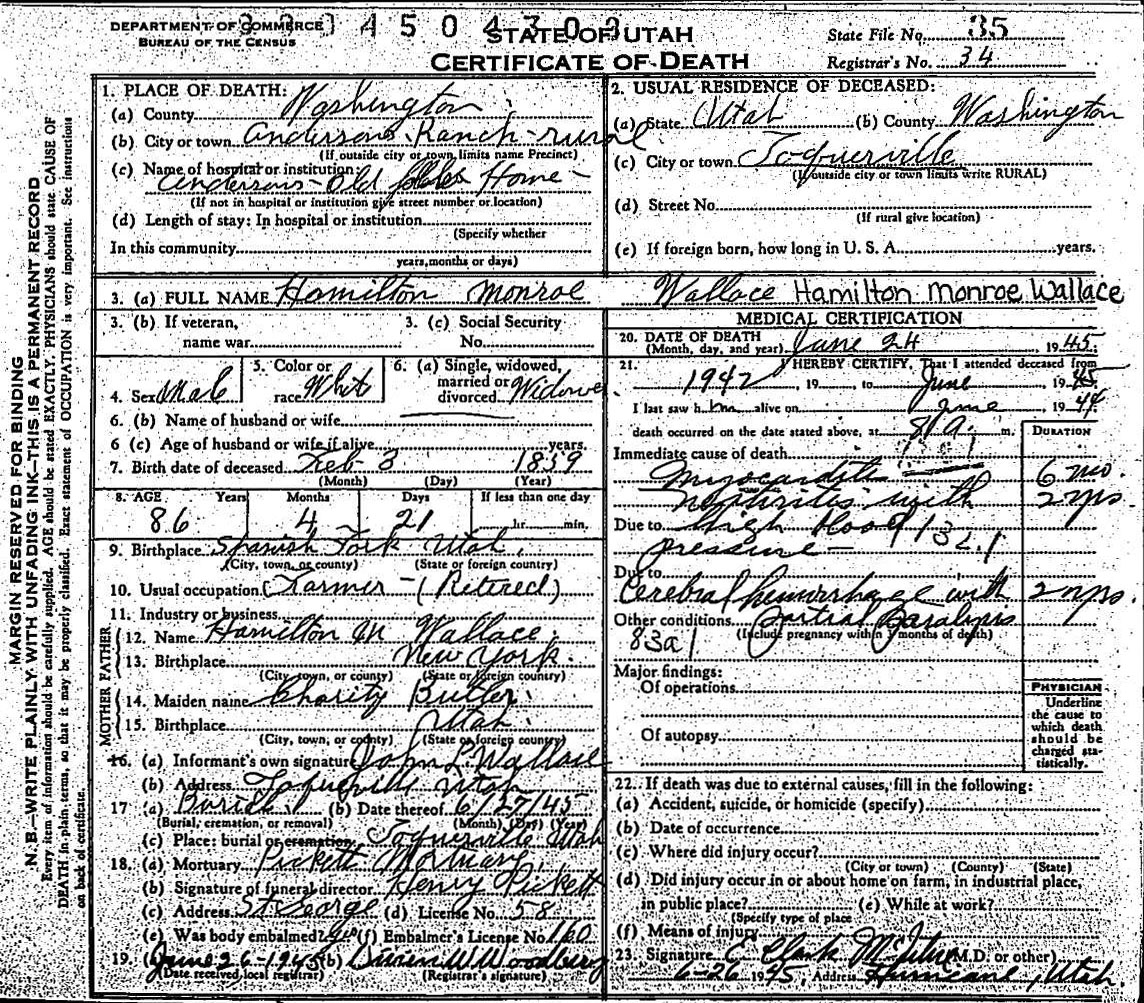 DEPARTMENT OF COMMERCE
BUREAU OF THE CENSUS
STATE OF UTAH
CERTIFICATE OF DEATH
State File No. 35
Registrar's No. 34
MARGIN RESERVED FOR BINDING
N. B.—WRITE PLAINLY, WITH UNFADING INK—THIS IS A PERMANENT RECORD
Every item of information should be carefully supplied. AGE should be stated EXACTLY. PHYSICIANS should state CAUSE OF
DEATH in plain terms, so that it may be properly classified. Exact statement of OCCUPATION is very important. See instructions
on back of certificate.
1. PLACE OF DEATH:
(a) County Washington
(b) City or town Andersons Ranch-rural
(If outside city or town limits name Precinct)
(c) Name of hospital or institution:
Andersons-Old folks Home-
(If not in hospital or institution give street number or location)
(d) Length of stay: In hospital or institution
(Specify whether
In this community
years, months or days)
2. USUAL RESIDENCE OF DECEASED:
(a) State Utah (b) County Washington
(c) City or town Toquerville
(If outside city or town limits write RURAL)
(d) Street No.
(If rural give location)
(e) If foreign born, how long in U. S. A. years.
3. (a) FULL NAME Hamilton Monroe Wallace Hamilton Monroe Wallace
3. (b) If veteran,
name war
3. (c) Social Security
No.
4. Sex Male
5. Color or
race White
6. (a) Single, widowed,
married or
divorced. Widower
6. (b) Name of husband or wife
6 (c) Age of husband or wife if alive years.
7. Birth date of deceased Feb 3 1859
(Month) (Day) (Year)
8. AGE Years Months Days If less than one day
86 4 21 hr. min.
9. Birthplace Spanish Fork Utah
(City, town, or county) (State or foreign country)
10. Usual occupation Farmer-(Retired)
11. Industry or business
FATHER
12. Name Hamilton M Wallace
13. Birthplace New York
(City, town, or county) (State or foreign country)
MOTHER
14. Maiden name Charity Butler
15. Birthplace Utah
(City, town, or county) (State or foreign country)
16. (a) Informant's own signature John L. Wallace
(b) Address Toquerville Utah
17 (a) Burial (b) Date thereof 6/27/45
(Burial, cremation, or removal) (Month) (Day) (Year)
(c) Place: burial or cremation Toquerville Utah
18. (a) Mortuary Pickett Mortuary
(b) Signature of funeral director Henry Pickett
(c) Address St George (d) License No. 58
(e) Was body embalmed? yes (f) Embalmer's License No. 160
19. (a) June 26-1945 (b) Woodbury
(Date received local registrar) (Registrar's signature)
MEDICAL CERTIFICATION
20. DATE OF DEATH
(Month, day, and year) June 24 1945.
21. I HEREBY CERTIFY, That I attended deceased from
1942, 19 to June 1945
I last saw him alive on June 1944
death occurred on the date stated above, at 8 a. m.
DURATION
Immediate cause of death
Myocarditis 6 mo
Nephrities with 2 yrs
Due to high blood 132.1
pressure-
Due to
Cerebral hemorrhage with 2 yrs.
Other conditions partial Paralysis
(Include pregnancy within 3 months of death)
83a1
Major findings:
Of operations
Of autopsy
PHYSICIAN
Underline
the cause to
which death
should be
charged sta-
tistically.
22. If death was due to external causes, fill in the following:
(a) Accident, suicide, or homicide (specify)
(b) Date of occurrence
(c) Where did injury occur?
(City or town) (County) (State)
(d) Did injury occur in or about home on farm, in industrial place,
in public place? (e) While at work?
(Specify type of place
(f) Means of injury
23. Signature E Clark McIntire (M.D. or other)
6-26 1945 Address Hurricane, Utah